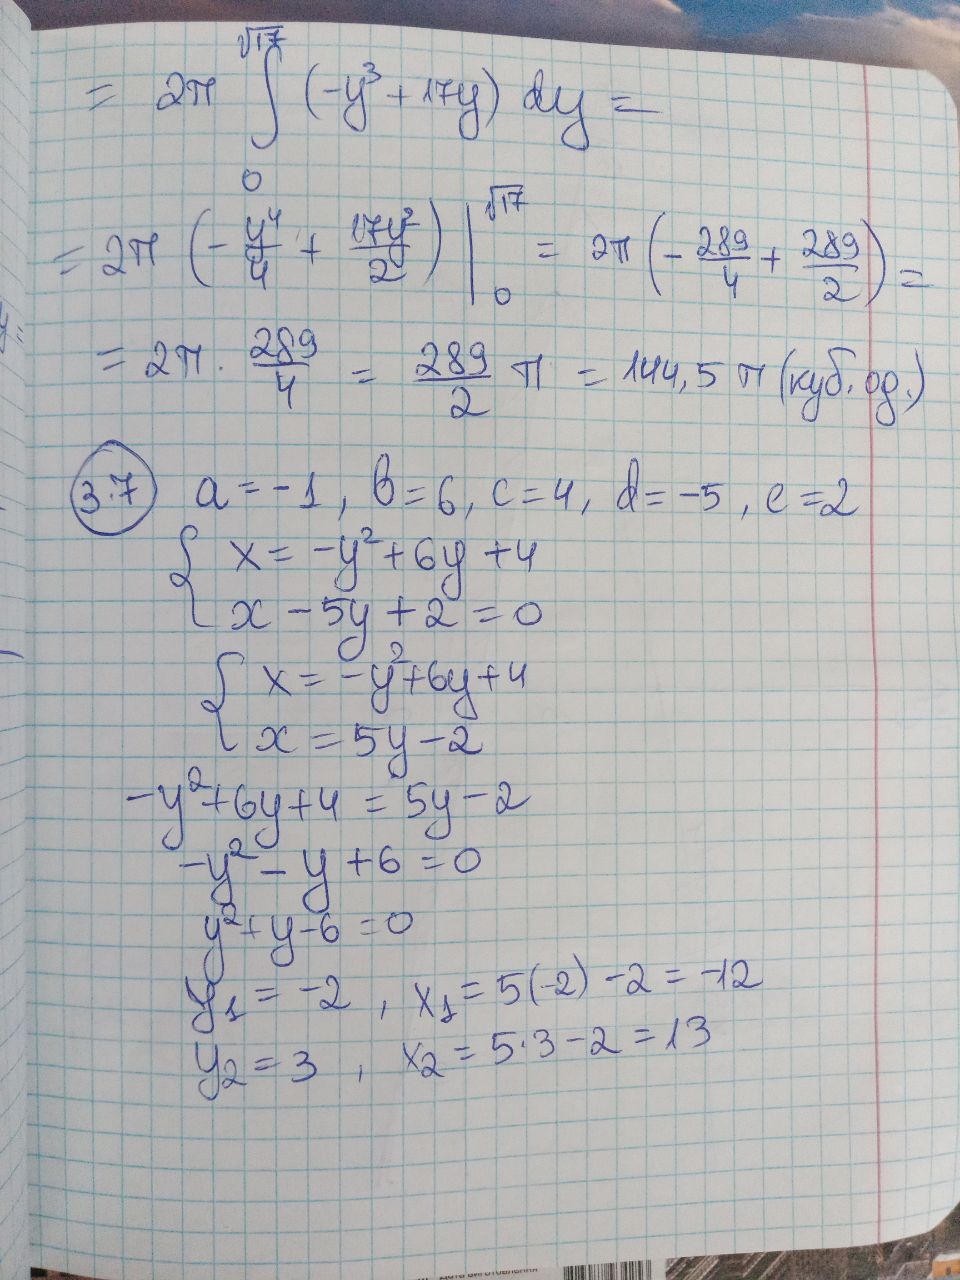 = 2π ∫₀^√17 (-y³ + 17y) dy =
= 2π (- y⁴/4 + 17y²/2) |₀^√17 = 2π (- 289/4 + 289/2) =
= 2π · 289/4 = 289/2 π = 144,5 π (куб. од.)
3.7 a = -1, b = 6, c = 4, d = -5, e = 2
{ x = -y² + 6y + 4
x - 5y + 2 = 0
{ x = -y² + 6y + 4
x = 5y - 2
-y² + 6y + 4 = 5y - 2
-y² - y + 6 = 0
y² + y - 6 = 0
y₁ = -2, x₁ = 5(-2) - 2 = -12
y₂ = 3, x₂ = 5·3 - 2 = 13